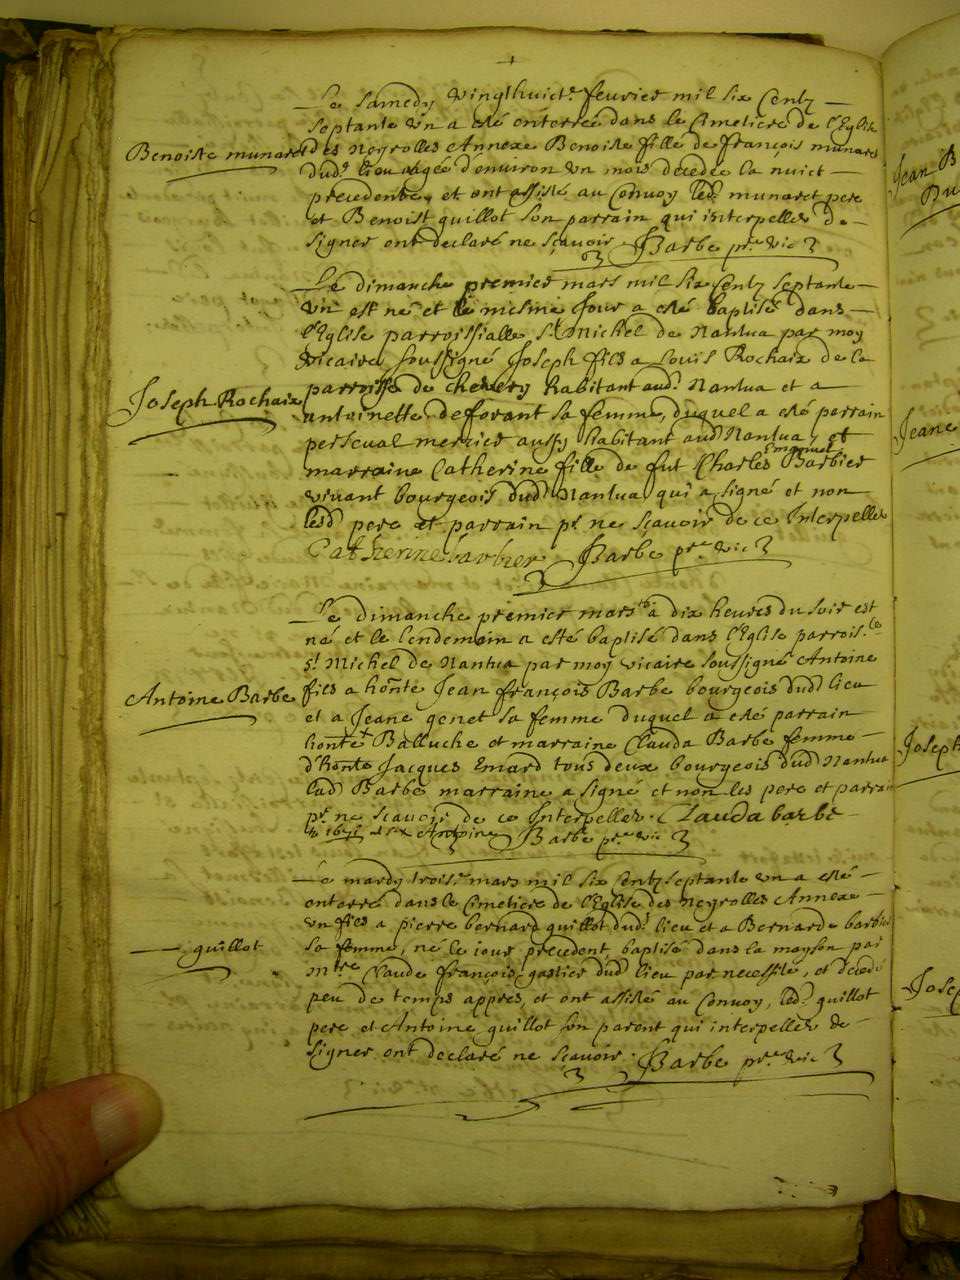 Le samedy vingthuict.e feurier mil six Centz
septante vn a esté enterrée dans le Cimetiere de l'Eglise
Benoiste munaret
des Neyrolles Annexe Benoiste fille de françois munaret
dud.t lieu agée d'enuiron vn mois decedée la nuict
precedente, et ont assisté au Convoy led.t munaret pere
et Benoist guillot son parrain qui interpellés de
signer ont declaré ne sçauoir Barbe p.re vic.
Le dimanche premier mars mil six Centz septante
vn est né et le mesme Jour a esté baptisé dans
l'Eglise parroissialle s.t Michel de Nantua par moy
vicaire soussigné Joseph fils a Louis Rochaix de la
Joseph Rochaix
parroisse de chevery habitant aud.t Nantua et a
antoinette deforant sa femme, duquel a esté parrain
perseual mercier aussy habitant aud.t Nantua, et
marraine Catherine fille de fut Charles Emanuel Barbier
viuant bourgeois dud.t Nantua qui a signé et non
lesd. pere et parrain p.r ne sçauoir de ce Interpellés
Catherine barbier Barbe p.re vic.
Le dimanche premier mars a dix heures du soir est
né et le lendemain a esté baptisé dans l'Eglise parrois.le
s.t Michel de Nantua par moy vicaire soussigné Antoine
Antoine Barbe
fils a hon.te Jean françois Barbe bourgeois dud.t lieu
et a Jeane genet sa femme duquel a esté parrain
hon.te Balluche et marraine Clauda Barbe femme
d'hon.te Jacques Emard tous deux bourgeois dud.t Nantua
lad.t Barbe marraine a signé et non les pere et parrain
p.r ne scauoir de ce Interpellés. Clauda barbe
Barbe p.re vic.
Le mardy trois.e mars mil six Centz septante vn a esté
enterré dans le Cimetiere de l'Eglise des Neyrolles Annexe
vn fils a pierre bernard guillot dud.t lieu et a Bernarde barbier
guillot
sa femme, né le iour precedent, baptisé dans la mayson par
m.tre Claude françois gastier dud.t lieu par necessité, et decedé
peu de temps appres, et ont assisté au Convoy, led.t guillot
pere et Antoine guillot son parent qui interpellés de
signer ont declaré ne sçauoir. Barbe p.re vic.
Jeane
Joseph